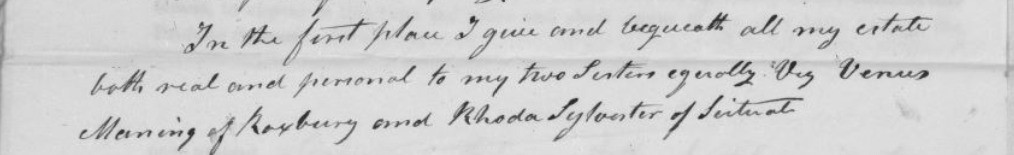 In the first place I give and bequeath all my estate
both real and personal to my two Sisters equally Viz Venus
Maning of Roxbury and Rhoda Sylvester of Scituate